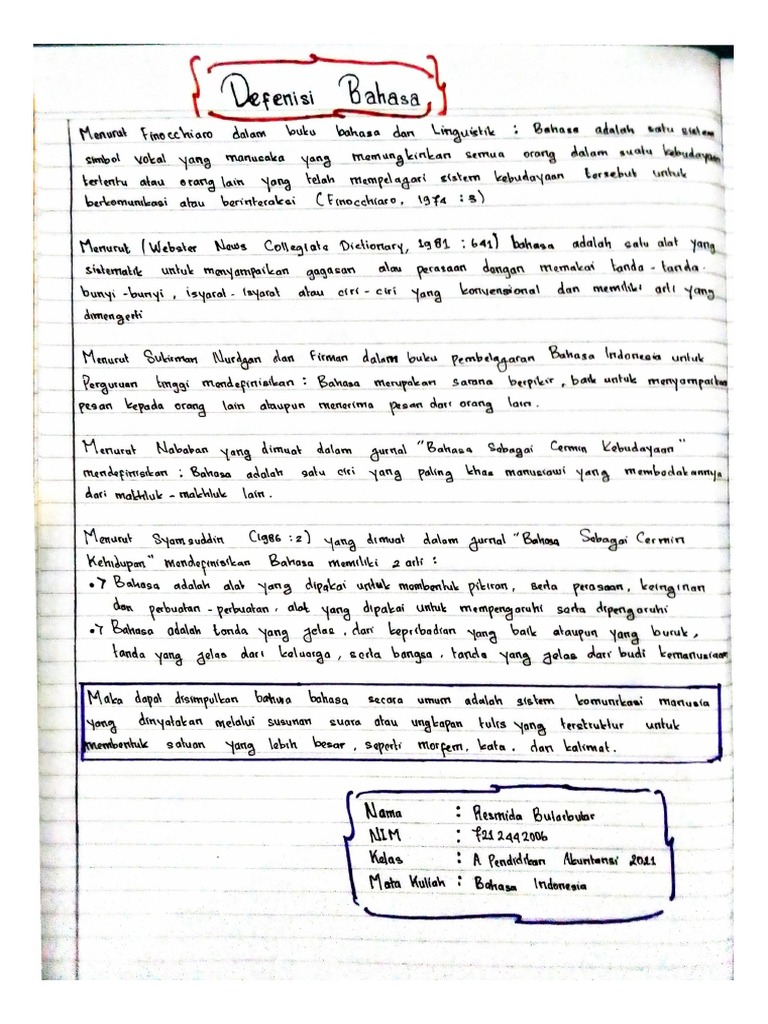 Defenisi Bahasa
Menurut Finocchiaro dalam buku bahasa dan Linguistik : Bahasa adalah satu sistem
simbol vokal yang manusaka yang memungkinkan semua orang dalam suatu kebudayaan
tertentu atau orang lain yang telah mempelajari sistem kebudayaan tersebut untuk
berkomunikasi atau berinteraksi (Finocchiaro, 1974 : 3)
Menurut (Webster News Collegiate Dictionary, 1981 : 641) bahasa adalah satu alat yang
sistematik untuk menyampaikan gagasan atau perasaan dengan memakai tanda-tanda.
bunyi-bunyi, isyarat-isyarat atau ciri-ciri yang konvensional dan memiliki arti yang
dimengerti
Menurut Sukirman Nurdjan dan Firman dalam buku pembelajaran Bahasa Indonesia untuk
Perguruan tinggi mendefinisikan : Bahasa merupakan sarana berpikir, baik untuk menyampaikan
pesan kepada orang lain ataupun menerima pesan dari orang lain.
Menurut Nababan yang dimuat dalam jurnal "Bahasa Sebagai Cermin Kebudayaan"
mendefinisikan : Bahasa adalah satu ciri yang paling khas manusiawi yang membedakannya
dari makhluk-makhluk lain.
Menurut Syamsuddin (1986 : 2) yang dimuat dalam jurnal "Bahasa Sebagai Cermin
Kehidupan" mendefinisikan Bahasa memiliki 2 arti :
•> Bahasa adalah alat yang dipakai untuk membentuk pikiran, serta perasaan, keinginan
dan perbuatan-perbuatan, alat yang dipakai untuk mempengaruhi serta dipengaruhi
•> Bahasa adalah tanda yang jelas, dari kepribadian yang baik ataupun yang buruk,
tanda yang jelas dari keluarga, serta bangsa, tanda yang jelas dari budi kemanusiaan
Maka dapat disimpulkan bahwa bahasa secara umum adalah sistem komunikasi manusia
yang dinyatakan melalui susunan suara atau ungkapan tulis yang terstruktur untuk
membentuk satuan yang lebih besar, seperti morfem, kata, dan kalimat.
Nama : Resmida Butarbutar
NIM : 7212442006
Kelas : A Pendidikan Akuntansi 2021
Mata Kuliah : Bahasa Indonesia